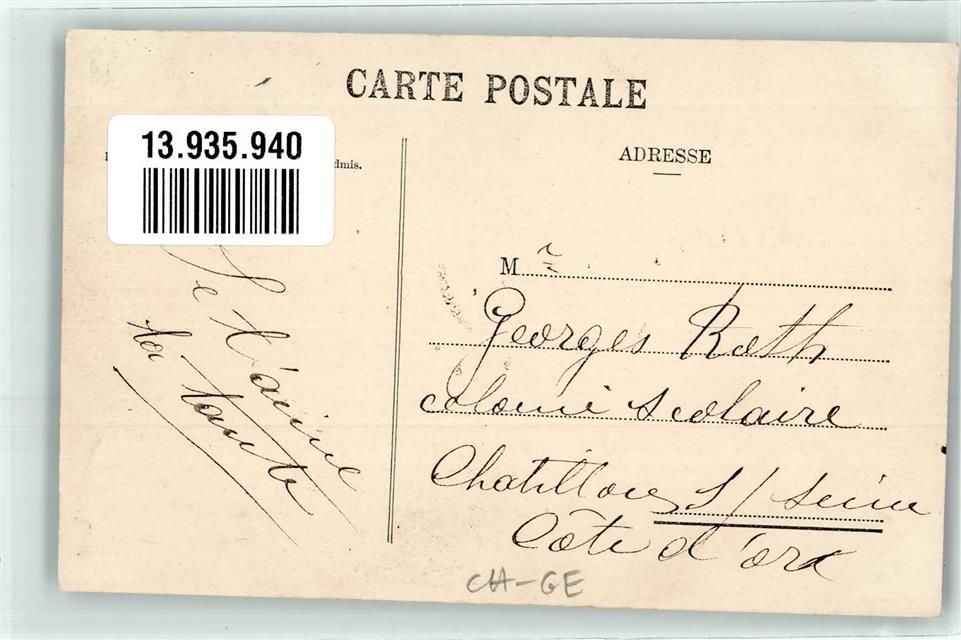 CARTE POSTALE
13.935.940
dmis.
Je t'aime
ta tante
ADRESSE
M
Georges Roth
colonie scolaire
Chatillon s/ seine
Côte d'or
CH-GE